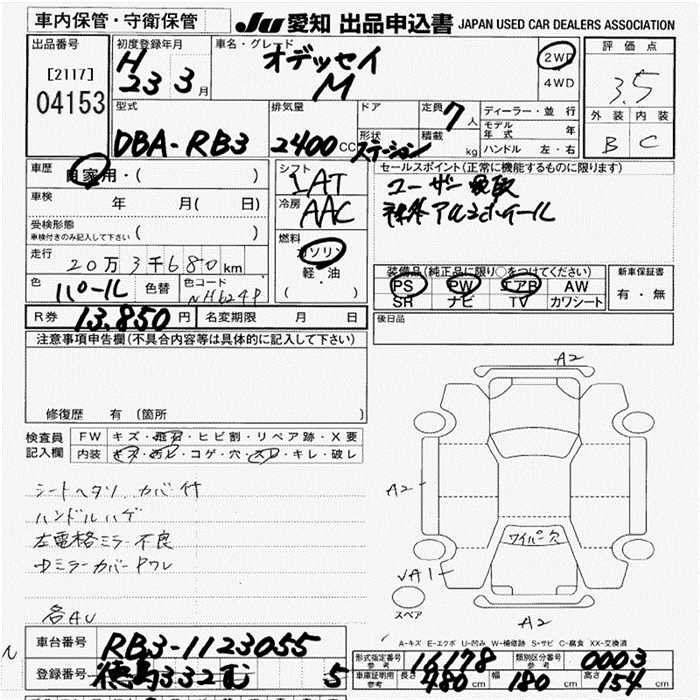 車内保管・守衛保管
JU 愛知 出品申込書 JAPAN USED CAR DEALERS ASSOCIATION
出品番号
[2117]
04153
初度登録年月
H
23 3月
車名・グレード
オデッセイ
M
2WD
4WD
評価点
3.5
外装 内装
B C
型式
DBA-RB3
排気量
2400cc
ドア
形状
ステーション
定員
7人
積載
kg
ディーラー・並行
モデル年式 年
ハンドル 左・右
車歴
自家用・( )
車検
年 月( 日)
受検形態
車検付きのみ記入して下さい ( )
走行
20万3千680km
色
パール
色替
色コード
NH624P
シフト
IAT
冷房
AAC
燃料
ガソリン
軽・油
( )
セールスポイント(正常に機能するものに限ります)
ユーザー買取
アルミホイール
装備品(純正品に限り○をつけてください)
PS PW エアB AW
SR ナビ TV カワシート
新車保証書
有・無
R券 13,850円
名変期限 月 日
後日品
注意事項申告欄(不具合内容等は具体的に記入して下さい)
修復歴 有 (箇所 )
検査員記入欄
FW キズ・飛石・ヒビ割・リペア跡・X要
内装 キズ・汚レ・コゲ・穴・スレ・キレ・破レ
シートヘタリ カバー付
ハンドルハゲ
左電格ミラー不良
ミラーカバーワレ
各AU
A2
A2
ワイパー欠
A2
スペア
A-キズ E-エクボ U-凹み W-補修跡 S-サビ C-腐食 XX-交換済
車台番号 RB3-1123055
登録番号 徳島332 5
形式指定番号 参考 16178
類別区分番号 参考 0003
車庫証明用 参考 長さ 480cm 幅 180cm 高さ 154cm